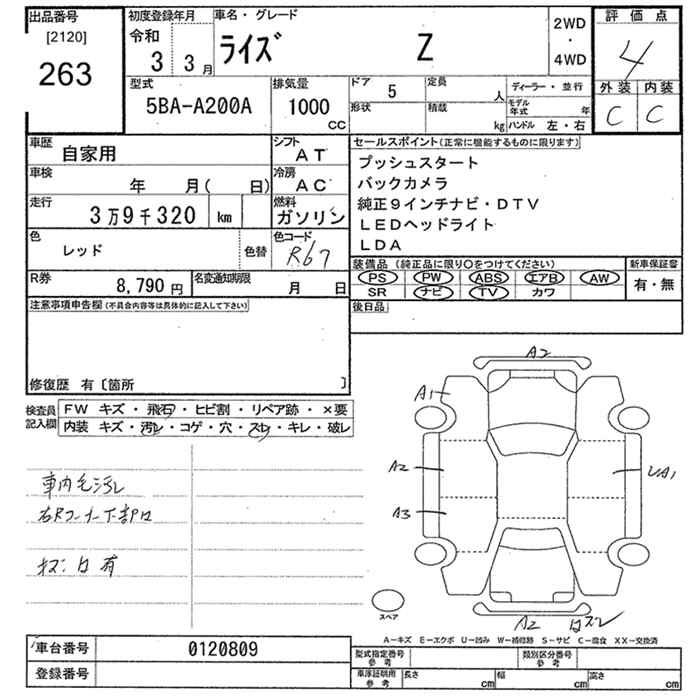 出品番号
[2120]
263
初度登録年月
令和
3 3月
車名・グレード
ライズ Z
2WD
・
4WD
評価点
4
外装 内装
C C
型式
5BA-A200A
排気量
1000
CC
ドア 5
定員 人
形状
積載 kg
ディーラー・並行
モデル年式 年
ハンドル 左・右
車歴
自家用
シフト
AT
車検
年 月( 日)
冷房
AC
走行
3万9千320 km
燃料
ガソリン
色
レッド
色替
色コード
R67
R券
8,790円
名変通知期限
月 日
セールスポイント(正常に機能するものに限ります)
プッシュスタート
バックカメラ
純正9インチナビ・DTV
LEDヘッドライト
LDA
装備品 (純正品に限り○をつけてください)
PS PW ABS エアB AW
SR ナビ TV カワ
新車保証書
有・無
後日品
注意事項申告欄(不具合内容等は具体的に記入して下さい)
修復歴 有〔箇所 〕
検査員記入欄
FW キズ・飛石・ヒビ割・リペア跡・×要
内装 キズ・汚レ・コゲ・穴・スレ・キレ・破レ
車内毛汚レ
右Rコーナー下部凹
A2
A1
A2
A3
UA1
A2
スペア
A-キズ E-エクボ U-凹み W-補修跡 S-サビ C-腐食 XX-交換済
車台番号
0120809
登録番号
型式指定番号
参考
類別区分番号
参考
車庫証明用
参考
長さ cm
幅 cm
高さ cm